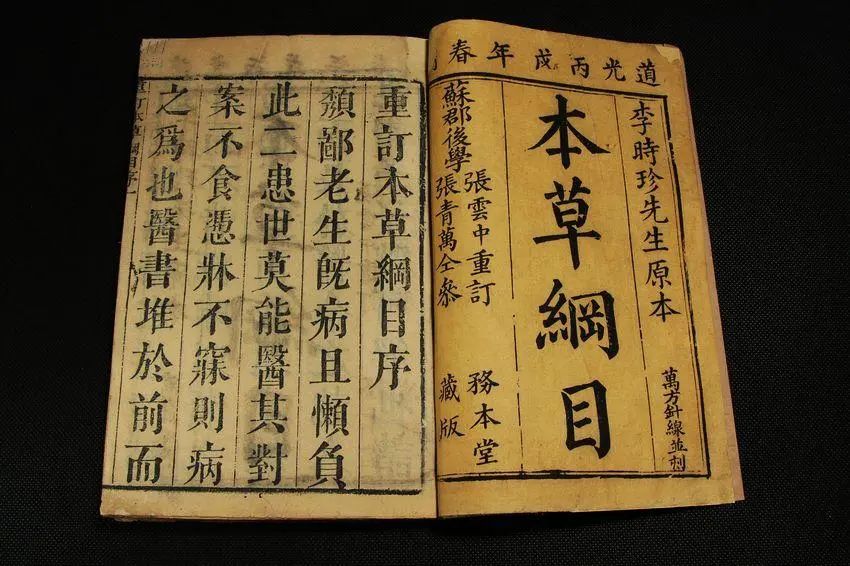 道光丙戌年春
李時珍先生原本
萬方針線並刻
本草綱目
張雲中重訂
蘇郡後學張青萬仝參
務本堂
藏版
重訂本草綱目序
頹鄙老生旣病且懶負
此二患世莫能醫其對
案不食憑牀不寐則病
之爲也醫書堆於前而